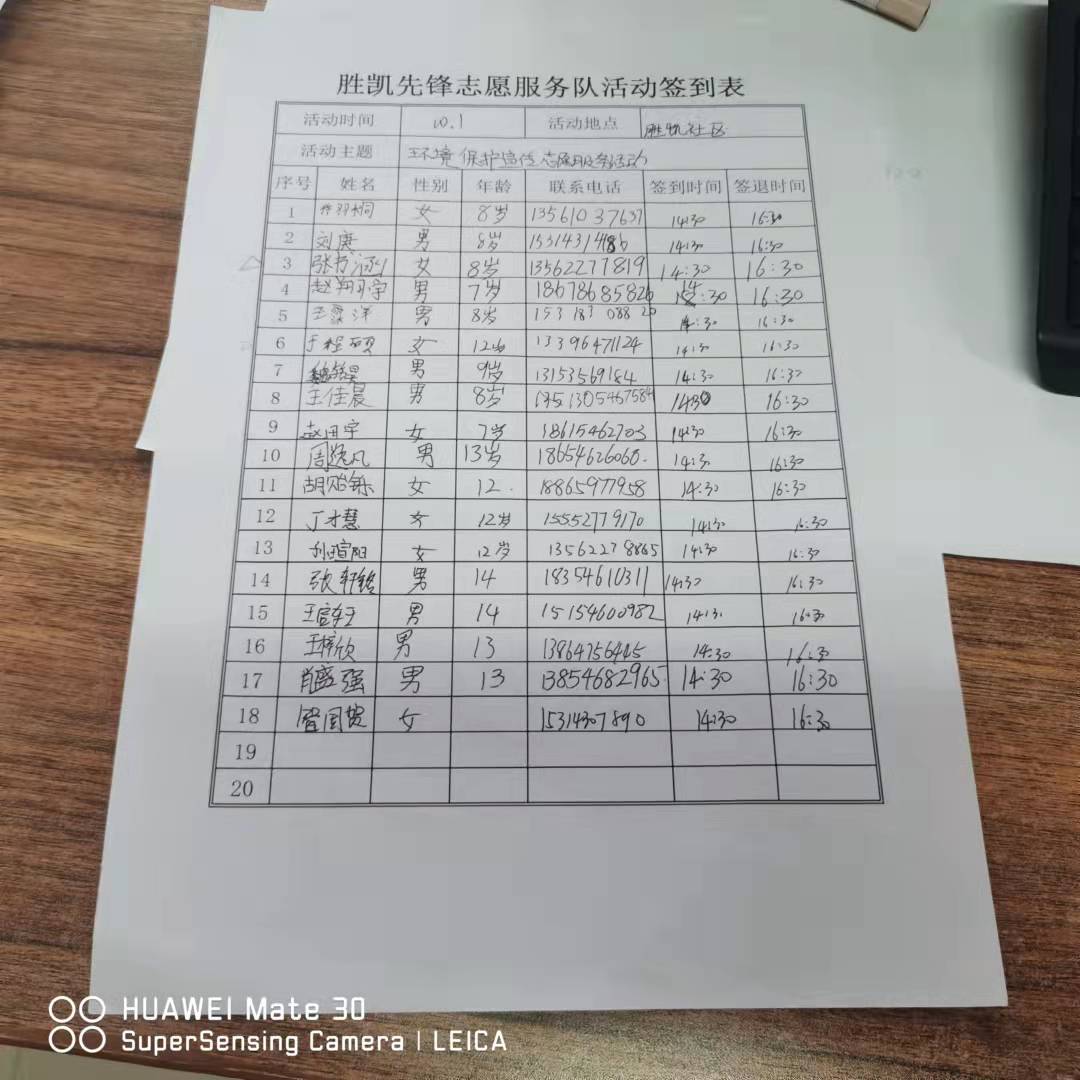 胜凯先锋志愿服务队活动签到表
活动时间 10.1 活动地点 胜凯社区
活动主题 环境保护宣传志愿服务活动
序号 姓名 性别 年龄 联系电话 签到时间 签退时间
1 女 8岁 13561037637 14:30 16:30
2 刘庚 男 8岁 14:30 16:30
3 张书涵 女 8岁 13562277819 14:30 16:30
4 男 7岁 18678685826 14:30 16:30
5 男 8岁 15318308820 14:30 16:30
6 于程硕 女 12岁 13396471124 14:30 16:30
7 男 9岁 13153569184 14:30 16:30
8 王佳晨 男 8岁 14:30 16:30
9 女 7岁 18615462703 14:30 16:30
10 周逸凡 男 13岁 18654626060. 14:30 16:30
11 胡贻铄 女 12. 18865977958 14:30 16:30
12 丁才慧 女 12岁 15552779170 14:30 16:30
13 孙瑄阳 女 12岁 13562278865 14:30 16:30
14 张轩铭 男 14 18354610311 14:30 16:30
15 男 14 15154600982 14:30 16:30
16 王梓欣 男 13 13964756445 14:30 16:30
17 肖盛强 男 13 13854682965. 14:30 16:30
18 女 15314307890 14:30 16:30
19
20
HUAWEI Mate 30
SuperSensing Camera | LEICA